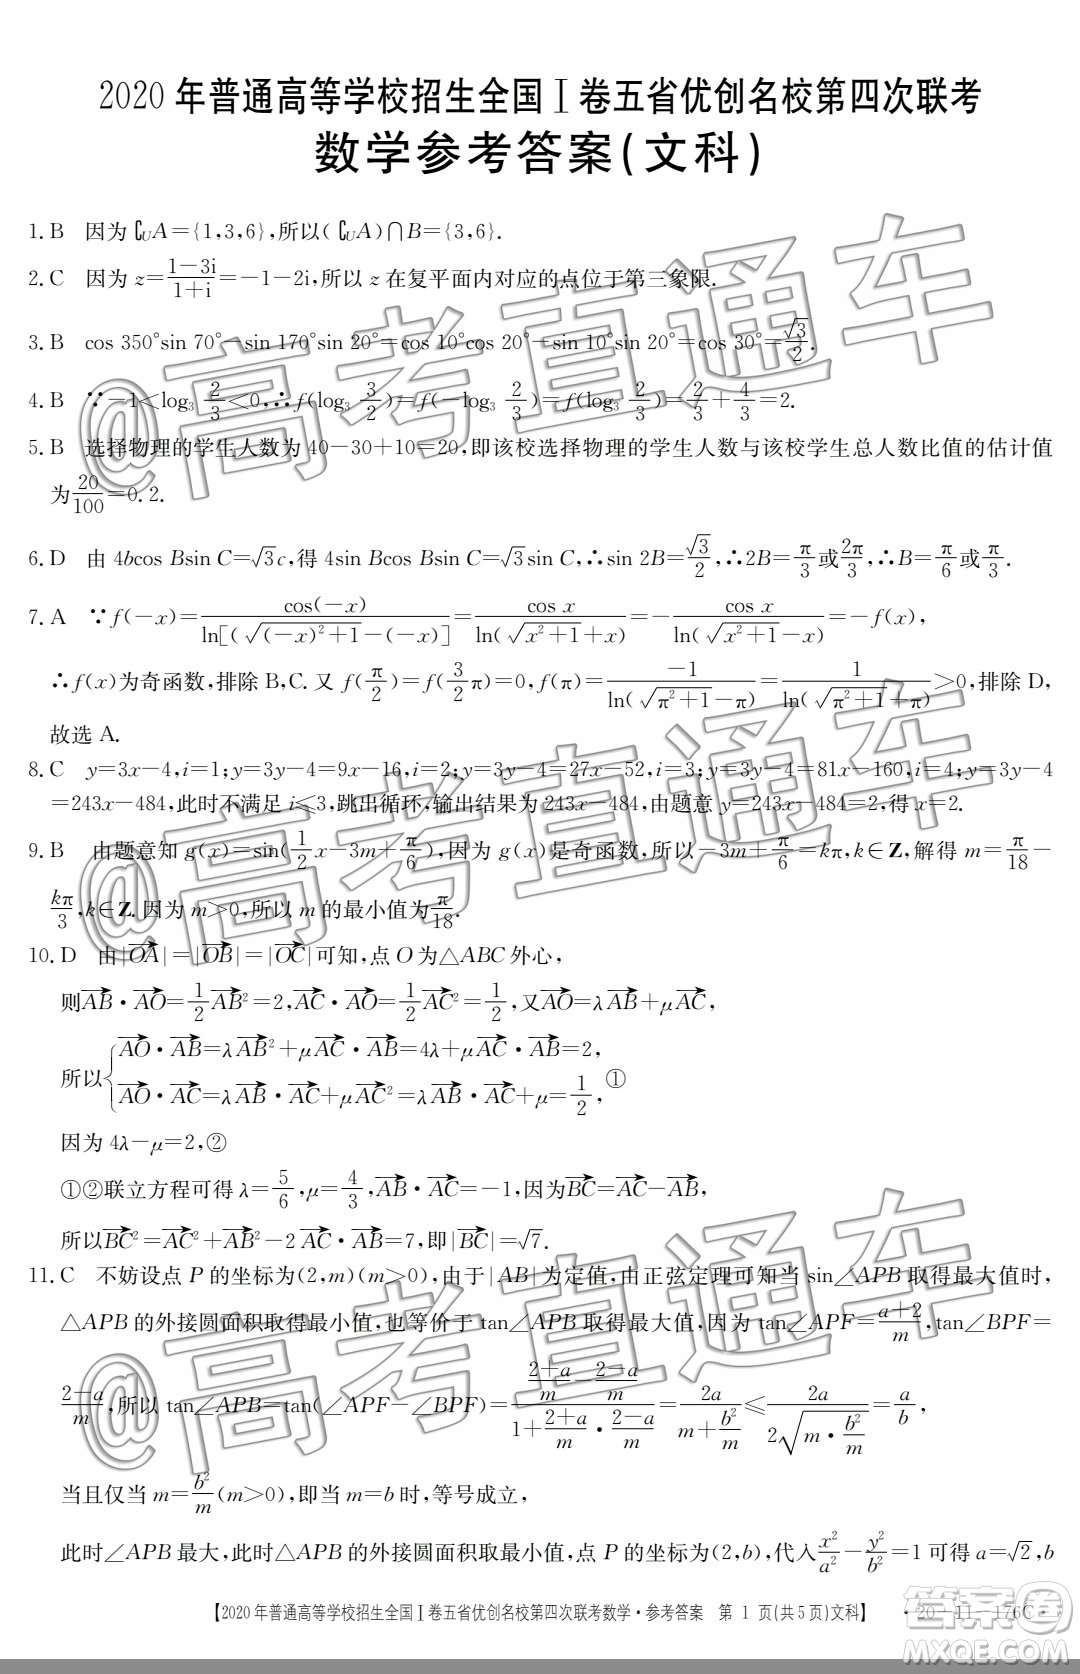 2020 年普通高等学校招生全国Ⅰ卷五省优创名校第四次联考
数学参考答案(文科)
1. B 因为∁UA={1,3,6},所以(∁UA)∩B={3,6}.
2. C 因为 z=(1-3i)/(1+i)=-1-2i,所以 z 在复平面内对应的点位于第三象限.
3. B cos 350°sin 70°-sin 170°sin 20°=cos 10°cos 20°-sin 10°sin 20°=cos 30°=√3/2.
4. B ∵-1<log₃ 2/3<0,∴f(log₃ 3/2)=f(-log₃ 2/3)=f(log₃ 2/3)=2/3+4/3=2.
5. B 选择物理的学生人数为 40-30+10=20,即该校选择物理的学生人数与该校学生总人数比值的估计值
为20/100=0.2.
6. D 由 4bcos Bsin C=√3c,得 4sin Bcos Bsin C=√3sin C,∴sin 2B=√3/2,∴2B=π/3或2π/3,∴B=π/6或π/3.
7. A ∵f(-x)=cos(-x)/ln[(√((-x)²+1)-(-x)]=cos x/ln(√(x²+1)+x)=-cos x/ln(√(x²+1)-x)=-f(x),
∴f(x)为奇函数,排除 B,C.又 f(π/2)=f(3/2π)=0,f(π)=-1/ln(√(π²+1)-π)=1/ln(√(π²+1)+π)>0,排除 D,
故选 A.
8. C y=3x-4,i=1;y=3y-4=9x-16,i=2;y=3y-4=27x-52,i=3;y=3y-4=81x-160,i=4;y=3y-4
=243x-484,此时不满足 i≤3,跳出循环,输出结果为 243x-484,由题意 y=243x-484=2,得 x=2.
9. B 由题意知 g(x)=sin(1/2x-3m+π/6),因为 g(x)是奇函数,所以-3m+π/6=kπ,k∈Z,解得 m=π/18-
kπ/3,k∈Z.因为 m>0,所以 m 的最小值为π/18.
10. D 由|OA→|=|OB→|=|OC→|可知,点 O 为△ABC 外心,
则AB→·AO→=1/2AB→²=2,AC→·AO→=1/2AC→²=1/2,又AO→=λAB→+μAC→,
所以{AO→·AB→=λAB→²+μAC→·AB→=4λ+μAC→·AB→=2,
AO→·AC→=λAB→·AC→+μAC→²=λAB→·AC→+μ=1/2, ①
因为 4λ-μ=2,②
①②联立方程可得 λ=5/6,μ=4/3,AB→·AC→=-1,因为BC→=AC→-AB→,
所以BC→²=AC→²+AB→²-2AC→·AB→=7,即|BC→|=√7.
11. C 不妨设点 P 的坐标为(2,m)(m>0),由于|AB|为定值,由正弦定理可知当 sin∠APB 取得最大值时,
△APB 的外接圆面积取得最小值,也等价于 tan∠APB 取得最大值,因为 tan∠APF=(a+2)/m,tan∠BPF=
(2-a)/m,所以 tan∠APB=tan(∠APF-∠BPF)=((2+a)/m-(2-a)/m)/(1+(2+a)/m·(2-a)/m)=2a/(m+b²/m)≤2a/(2√(m·b²/m))=a/b,
当且仅当 m=b²/m(m>0),即当 m=b 时,等号成立,
此时∠APB 最大,此时△APB 的外接圆面积取最小值,点 P 的坐标为(2,b),代入x²/a²-y²/b²=1 可得 a=√2,b
【2020 年普通高等学校招生全国Ⅰ卷五省优创名校第四次联考数学·参考答案 第 1 页(共 5 页)文科】 ·20-11-176C·
@高考直通车
@高考直通车
@高考直通车
答案圈
MXQE.COM